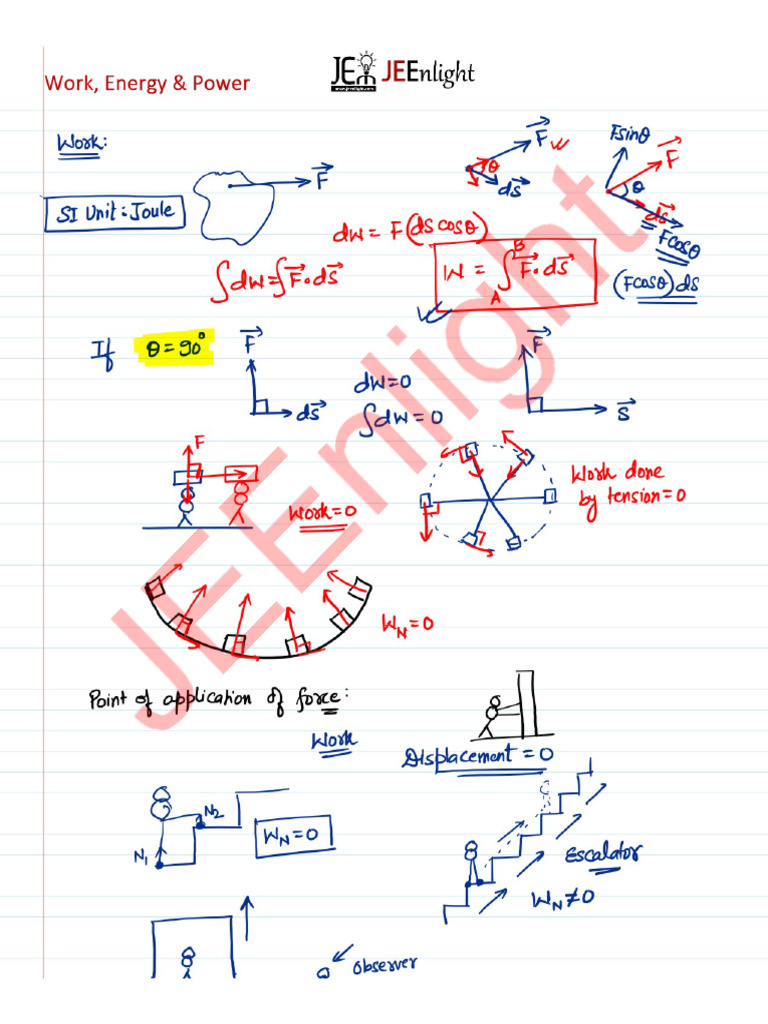 Work, Energy & Power
JEEnlight
Work:
SI Unit: Joule
F
F
θ
ds
Fsinθ
F
θ
ds
Fcosθ
(Fcosθ)ds
dW = F(ds cosθ)
∫dW = ∫F·ds
W = ∫ F·ds
B
A
If θ = 90°
F
ds
dW=0
∫dW = 0
F
S
F
Work=0
Work done
by tension=0
W_N = 0
Point of application of force:
Work
Displacement = 0
N1
N2
W_N = 0
Escalator
W_N ≠ 0
Observer
JEEnlight